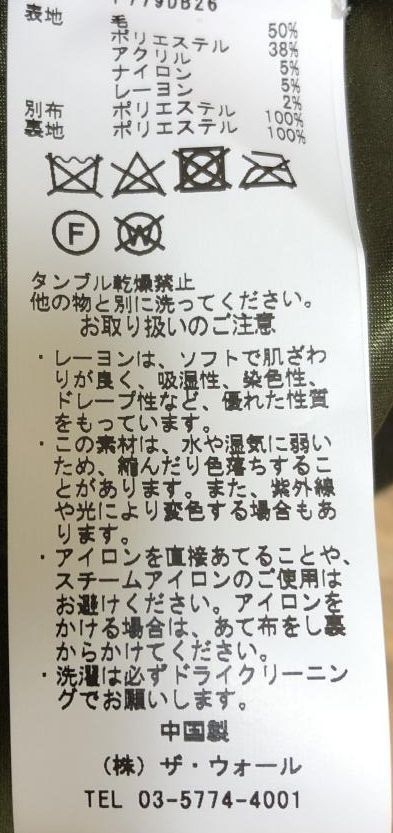 表地 毛 50%
ポリエステル 38%
アクリル 5%
ナイロン 5%
レーヨン 2%
別布 ポリエステル 100%
裏地 ポリエステル 100%
F W
タンブル乾燥禁止
他の物と別に洗ってください。
お取り扱いのご注意
・レーヨンは、ソフトで肌ざわ
りが良く、吸湿性、染色性、
ドレープ性など、優れた性質
をもっています。
・この素材は、水や湿気に弱い
ため、縮んだり色落ちするこ
とがあります。また、紫外線
や光により変色する場合もあ
ります。
・アイロンを直接あてることや、
スチームアイロンのご使用は
お避けください。アイロンを
かける場合は、あて布をし裏
からかけてください。
・洗濯は必ずドライクリーニン
グでお願いします。
中国製
(株) ザ・ウォール
TEL 03-5774-4001